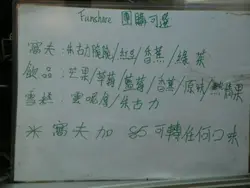 Funshare 團購可選
窩夫：朱古力脆脆/紅豆/香蕉/綠茶
飲品：芒果/草莓/藍莓/香蕉/原味/蘋果
雪糕：雲呢拿/朱古力
※ 窩夫加 $5 可轉任何口味